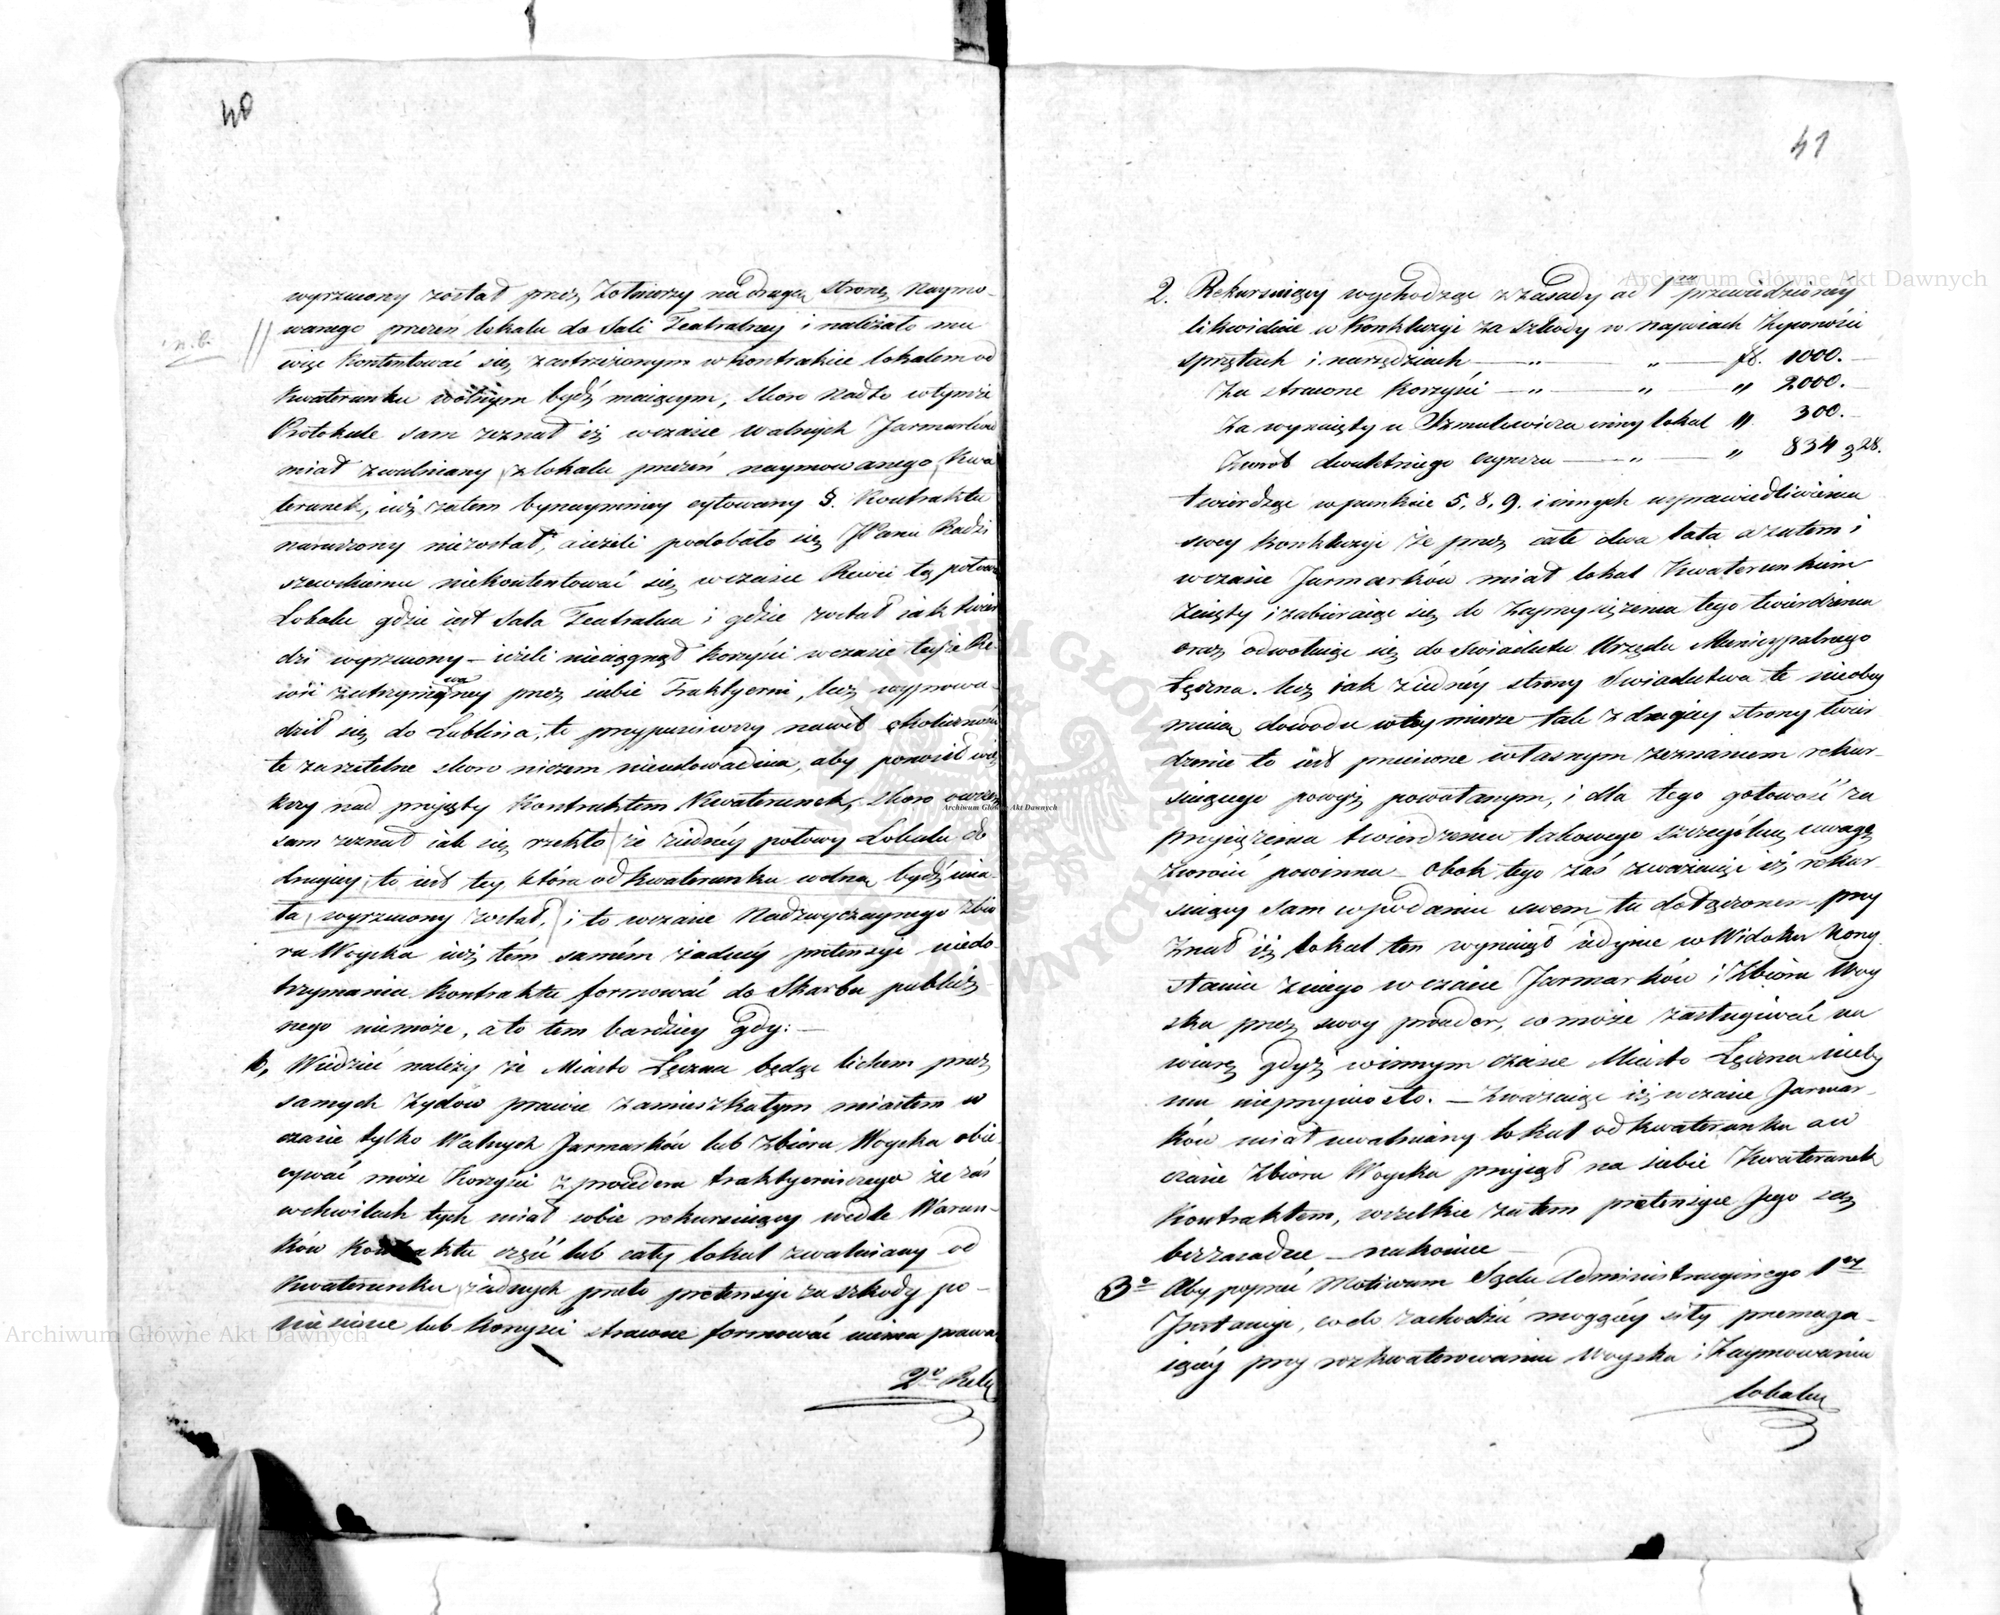 40
wyrzucony został przez Żołnierzy na drugą stronę Naymo-
n.b. wanego przezeń lokalu do Sali Teatralney i należało mu
więc kontentować się zastrzeżonym w kontrakcie lokalem od
Kwaterunku wolnym bydź maiącym, skoro nadto w tymże
Protokule sam zeznał iż w czasie walnych Jarmarków
miał zwalniany z lokalu przezeń naymowanego Kwa
terunek, iuż zatem bynaymniey cytowany §. Kontraktu
naruszony niezostał, ieżeli podobało się JPanu Radzi
szewskiemu niekontentować się w czasie Rewii tą połową
Lokalu gdzie iest Sala Teatralna i gdzie został iak twier
dzi wyrzucony – ieżeli nieciągnął korzyści w czasie teyże Re-
wii zatrzymywaney przez siebie Traktyerni, lecz wyprowa-
dził się do Lublina, to przypuściwszy nawet okoliczności
te za rzetelne skoro niczem nieudowadnia, aby poniósł wię
kszy nad przyięty Kontraktem Kwaterunek, skoro owszem
sam zeznał iak się rzekło że z iedney połowy Lokalu do
drugiey, to iest tey która od kwaterunku wolną bydź mia-
ła, wyrzucony został, i to w czasie Nadzwyczaynego zbio
ru Woyska iuż tém samém żadnéy pretensyi niedo-
trzymania kontraktu formować do Skarbu publicz
nego niemoże, a to tem bardziey gdy: —
b, Wiedzieć należy że Miasto Łęczna będąc lichem przez
samych Żydów prawie zamieszkałym miastem w
czasie tylko Walnych Jarmarków lub Zbioru Woyska obie-
cywać może Korzyści z procederu traktyerniczego że zaś
w chwilach tych miał sobie rekursuiący wedle Warun-
ków Kontraktu część lub cały lokal zwalniany od
Kwaterunku żadnych przeto pretensyi za szkody po-
niesione lub korzyści stracone formować niema prawa
2o Reku
41
2. Rekursuiący wychodząc z zasady ad 1um przewidzioney
likwiduie w Konkluzyi za szkody w napoiach Żywności
sprzętach i narzędziach — „ — „ — fl. 1000. —
Za stracone Korzyści — „ — „ „ 2000. —
Za wynaięty u Szmulowicza inny lokal „ 300. —
Zwrot dwuletniego czynszu — „ — „ 834 g 28.
twierdząc w punkcie 5, 8, 9. i innych usprawiedliwienia
swey konkluzyi że przez całe dwa lata a zatem i
w czasie Jarmarków miał lokal Kwaterunkiem
Zaięty i zabieraiąc się do Zaprzysiężenia tego twierdzenia
oraz odwołuiąc się do Swiadectw Urzędu Municypalnego
Łęczna. lecz iak z iednéy strony Swiadectwa te nieobey
muią dowodu w tey mierze tak z drugiey strony twier
dzenie to iest zniesione własnym zeznaniem rekur-
suiącego powyż powołanym, i dla tego gotowość za
przysiężenia twierdzenia takowego szczególną uwagę
zwrócić powinna – obok tego zaś zważaiąc iż rekur-
suiący sam w podaniu swem tu dołączonem przy
znał iż lokal ten wynaiął iedynie w Widoku Korzy
stania z niego w czasie Jarmarków i Zbioru Woy
ska przez swoy proceder, co może zasługiwać na
wiarę gdyż w innym czasie Miasto Łęczna nieby
mu nieprzyniosło. — Zważaiąc iż w czasie Jarmar-
ków miał uwalniany lokal od kwaterunku a w
czasie Zbioru Woyska przyiął na siebie Kwaterunek
Kontraktem, wszelkie zatem pretensyie Jego są
bezzasadne – nakoniec
3o Aby poprzeć Motiwum Sądu Administracyinego 1ey
Instancyi, co do zachodzić mogącéy siły przemaga-
iącéy przy rozkwaterowaniu Woyska i Zaymowaniu
lokalu
Archiwum Główne Akt Dawnych